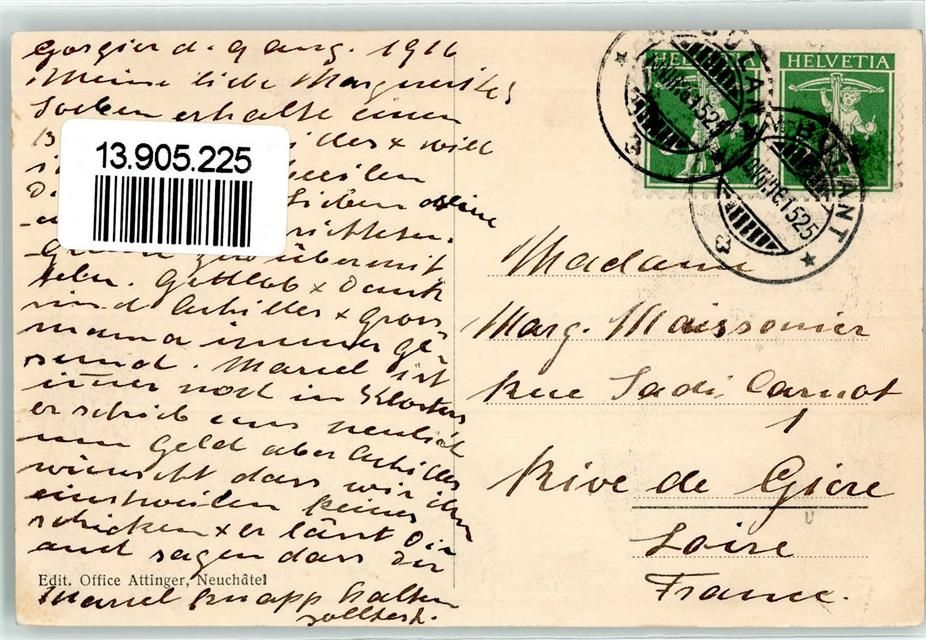 Gorgier d. 9 aug. 1916
Meine liebe Marguerite!
Soeben erhalte einen
13.905.225
& will
Lieben deine
richten.
übermit
teln. Gottlob & Dank
sind Achilles & Gross-
mama immer ge-
sund. Marcel ist
immer noch in Klosters
er schrieb uns neulich
um Geld aber Achilles
wünscht dass wir ihm
einstweilen keines
schicken & er lässt Dir
auch sagen dass Du
Marcel knapp halten
solltest.
Edit. Office Attinger, Neuchâtel
HELVETIA
HELVETIA
Madame
Marg. Maissonier
Rue Sadi Carnot
1
Rive de Giere
Loire
France.